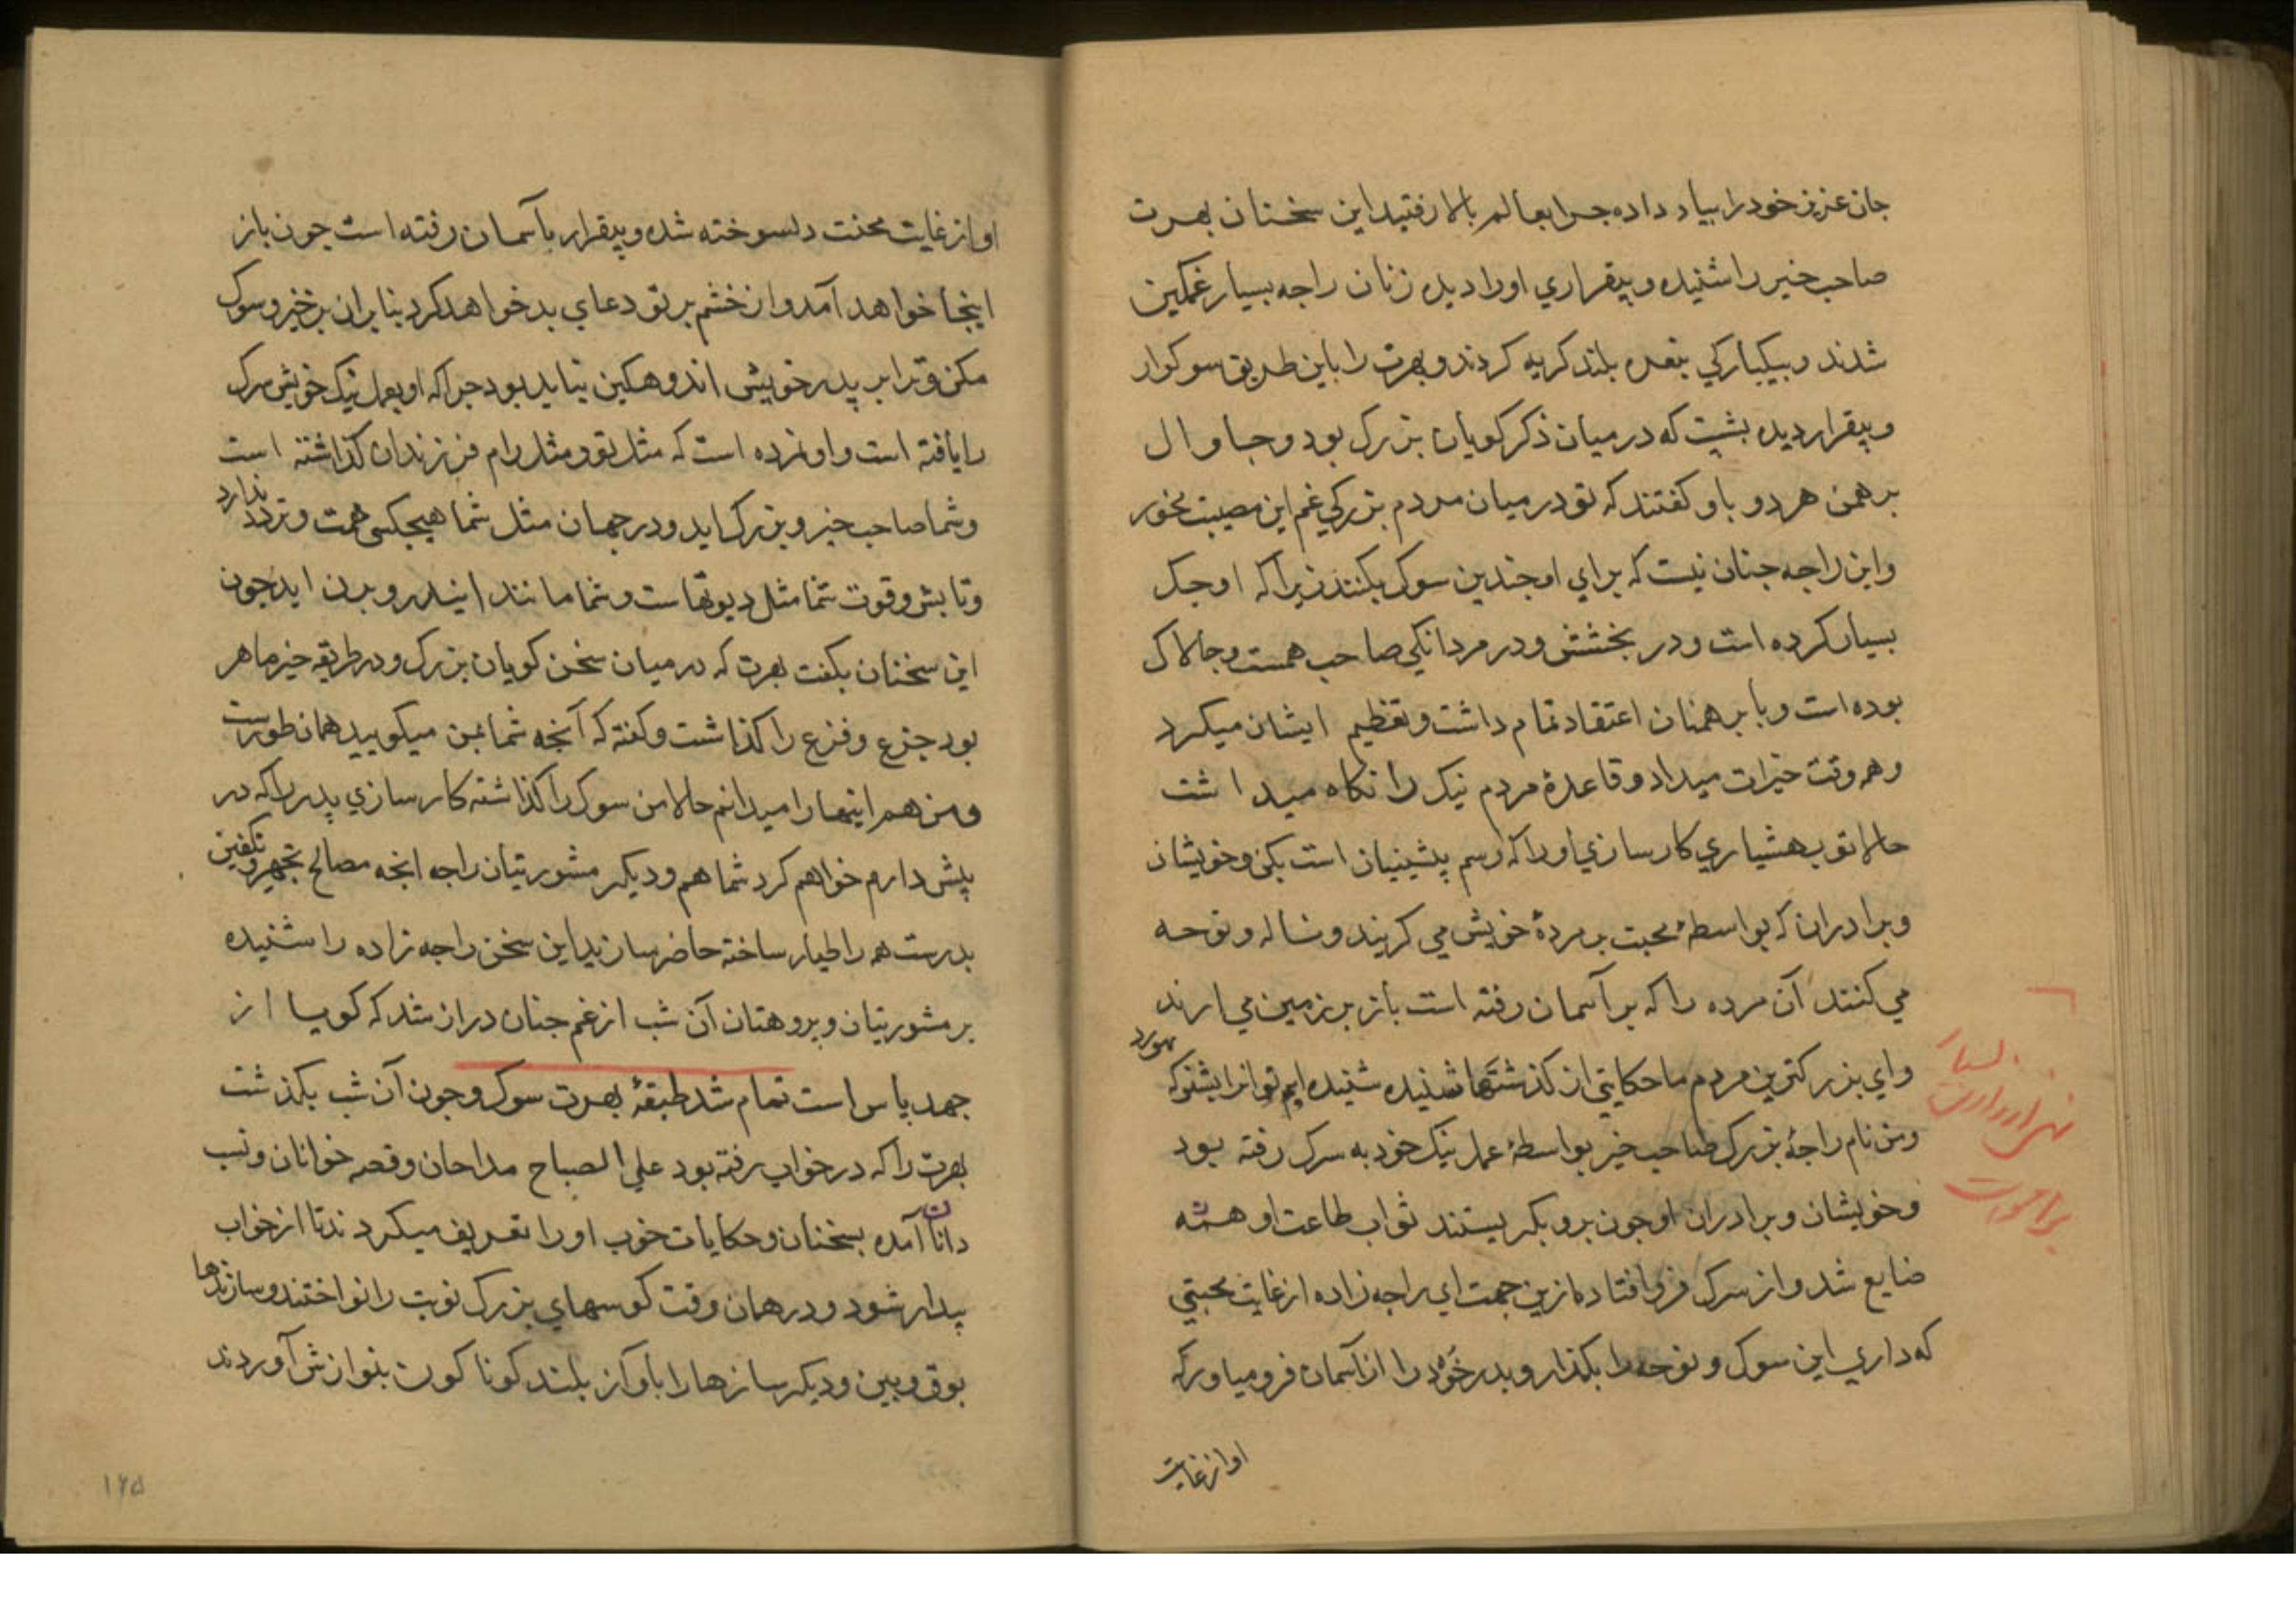 جان عزیز خود را بباد داده جرا بعالم بالا رفتید این سخنان بهرت
صاحب خیر را شنیده و بیقراري او را دیده زنان راجه بسیار غمکین
شدند و بیکبارکي بنعره بلند کریه کردند و بهرت را باین طریق سوکوار
و بیقرار دیده بشپت که در میان ذکر کویان بزرک بود و جاوال
برهمن هر دو باو کفتند که تو در میان مردم بزرکي غم این مصیبت مخور
و این راجه جنان نیست که براي او جندین سوک بکنند زیرا که او جک
بسیار کرده است و در بخشش و در مردانکي صاحب همت و جالاک
بوده است و با برهمنان اعتقاد تمام داشت و تعظیم ایشان میکرد
و همه وقت خیرات میداد و قاعدهٔ مردم نیک را نکاه میداشت
حالا تو بهشیاري کارسازي او را که رسم پیشینیان است بکن و خویشان
و برادران که بواسطهٔ محبت بر مردهٔ خویش مي کریند و ناله و نوحه
مي کنند آن مرده را که بر آسمان رفته است باز بر زمین مي ارند
واي بزرکترین مردم ما حکایتي از کذشتها شنیده شنیده ایم تو انرا بشنو که بهورد
ومن نام راجهٔ بزرک صاحب خیر بواسطهٔ عمل نیک خود به سرک رفته بود
و خویشان و برادران او جون برو بکریستند ثواب طاعت او همه
ضایع شد و از سرک فرو افتاد مازین جهت اي راجه زاده از غایت محبتي
که داري این سوک و نوحه را بکذار و پدر خود را از آسمان فرو میاور که
او از غایت
او از غایت محنت دلسوخته شده و بیقرار بآسمان رفته است جون باز
اینجا خواهد آمد و از خشم بر تو دعاي بد خواهد کرد بنابران برخیز و سوک
مکن و ترا بر پدر خویش اندوهکین نباید بود جراکه او بعمل نیک خویش سرک
را یافته است و او نمرده است که مثل تو و مثل رام فرزندان کذاشته است
و شما صاحب خیر و بزرک اید و در جهان مثل شما هیجکس همت و تردد ندارد
و تابش و قوت شما مثل دیوتهاست و شما مانند ایندر و برن اید جون
این سخنان بکفت بهرت که در میان سخن کویان بزرک و در طریقه خیر ماهر
بود جزع و فزع را کذاشت و کفته که آنجه شما بمن میکویید همان طورست
و من هم اینها را میدانم حالا من سوک را کذاشته کارسازي پدر را که در
پیش دارم خواهم کرد شما هم و دیکر مشورتیان راجه انجه مصالح تجهیز و تکفین
بدرست همه را طیار ساخته حاضر سازید این سخن راجه زاده را شنیده
بر مشورتیان و پروهتان آن شب از غم جنان دراز شد که کویا از
جهد پاس است تمام شد طبقهٔ بهرت سوک و جون آن شب بکذشت
بهرت را که در خواب رفته بود علي الصباح مداحان و قصه خوانان و نسب
دانان آمده بسخنان و حکایات خوب او را تعریف میکردند تا از خواب
بیدار شود و در همان وقت کوسهاي بزرک نوبت را نواختند و سازندها
بوق و بین و دیکر سازها را باواز بلند کوناکون بنوازش آوردند
۱۶۵